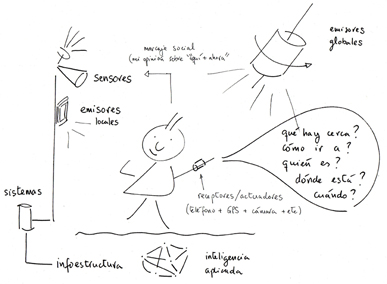 emisores
globales
marcaje social
(mi opinión sobre "aquí + ahora")
sensores
emisores
locales
qué hay cerca?
cómo ir a?
quién es?
dónde está?
cuándo?
receptores/actuadores
(teléfono + GPS + cámara + etc)
sistemas
infoestructura
inteligencia
aplicada